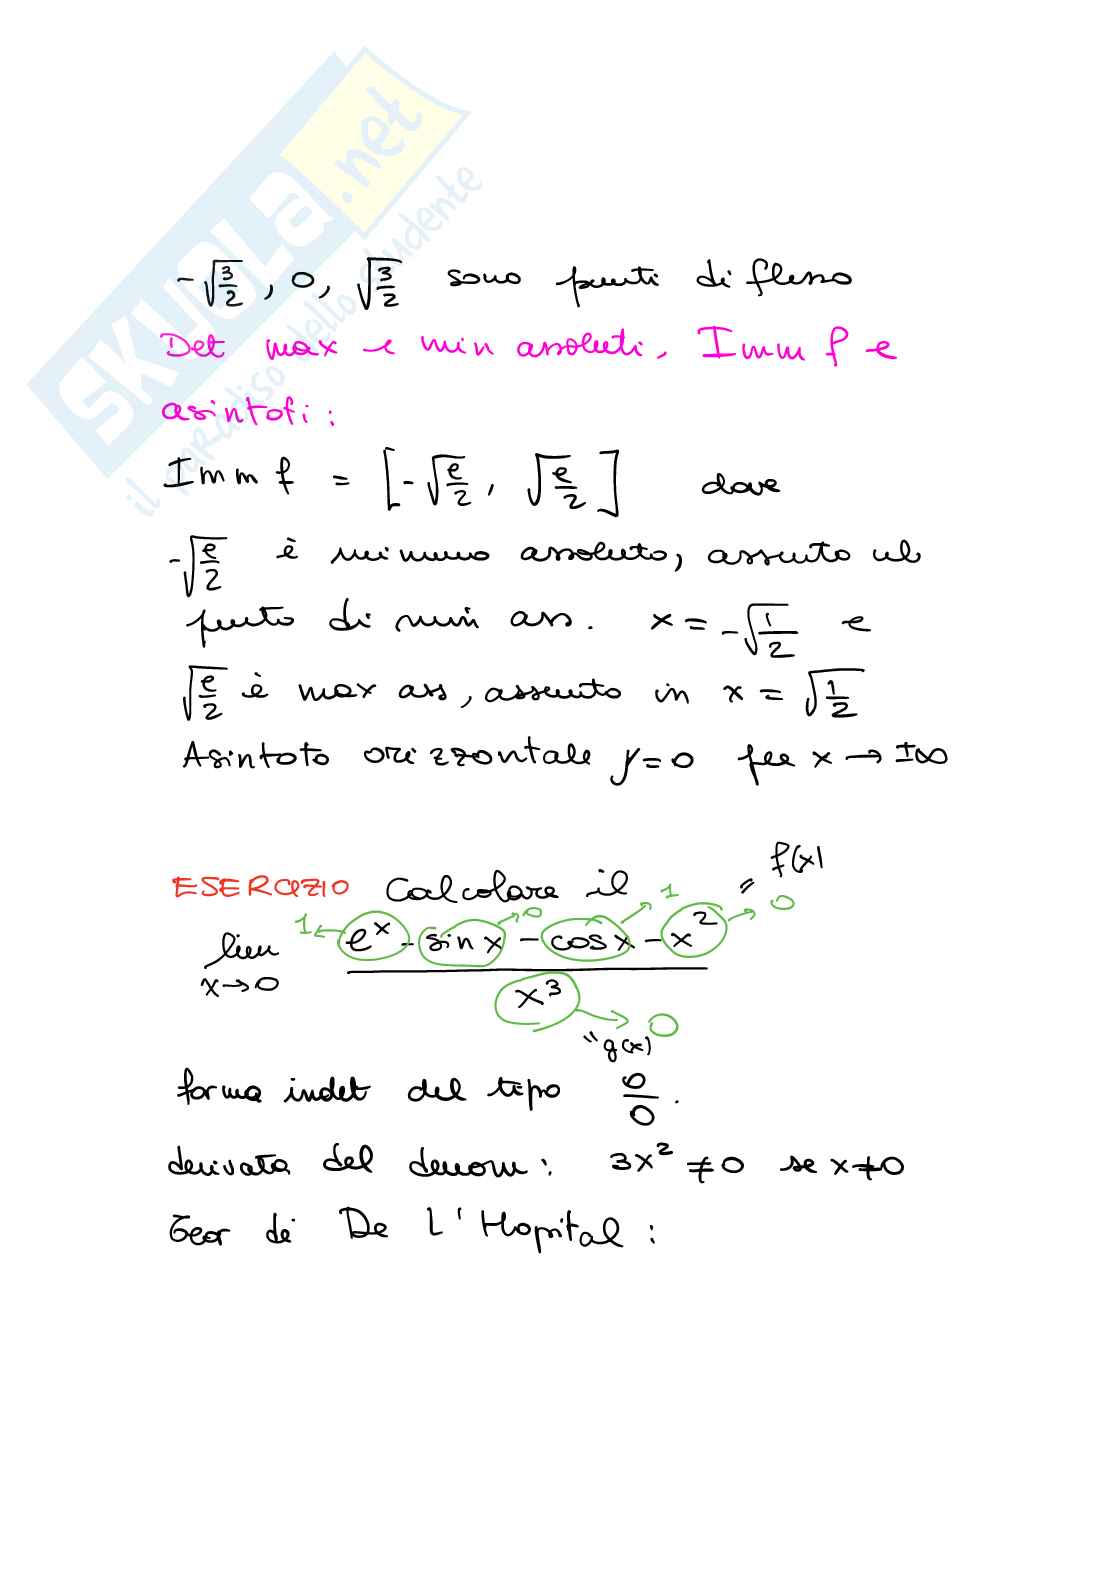 SKUOLA.net
il paradiso dello studente
-√3/2 , 0, √3/2 sono punti di flesso
Det max e min assoluti, Imm f e
asintoti :
Imm f = [-√e/2 , √e/2] dove
-√e/2 è minimo assoluto, assunto nel
punto di min ass. x = -√1/2 e
√e/2 è max ass, assunto in x = √1/2
Asintoto orizzontale y=0 per x → ±∞
= f(x)
ESERCIZIO Calcolare il
1 ← e^x - sin x → 0 - cos x → 1 - x² → 0
lim
x→0
x³ → 0
" g(x)
forma indet del tipo 0/0 .
derivata del denom: 3x² ≠0 se x≠0
Teor di De L'Hopital :